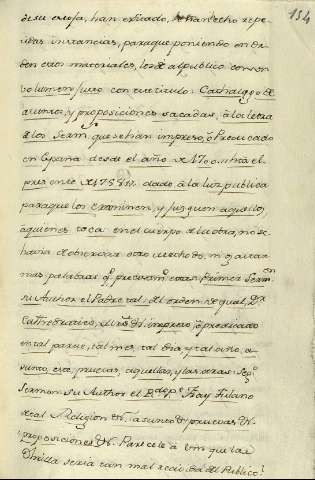 154
de su casa, han exitado, han hecho repe-
tidas instancias, para que poniendo en or-
den estos materiales, los dè al publico con un
volumen suyo con este titulo: Cathalogo de
asuntos, y proposiciones sacadas, à la letra
de los Serm.s que se han impreso, ò Predicado
en España desde el año de 1700. hta. el
presente de 1758 dado, à la luz publica
para que los examinen, y juzguen aquellos,
à quienes toca: en el cuerpo de la obra, no se
havia de observar otro methodo, ni gastar
mas palabras q.e precisam.te estas: primer Serm.on
su Author el Padre tal, del orden de qual, D.r
Cathedratico, &. impreso, ò predicado
en tal parte, tal mes, tal dia, y tal año, a-
sunto, este, pruevas, aquellas, y las otras: Seg.o
Sermon: Su Author el P. Fray Fulano
de tal Religion &. asunto & pruevas &.
proposiciones &. Parecele à Vm que la
Obrilla seria tan mal recivida del Publico?